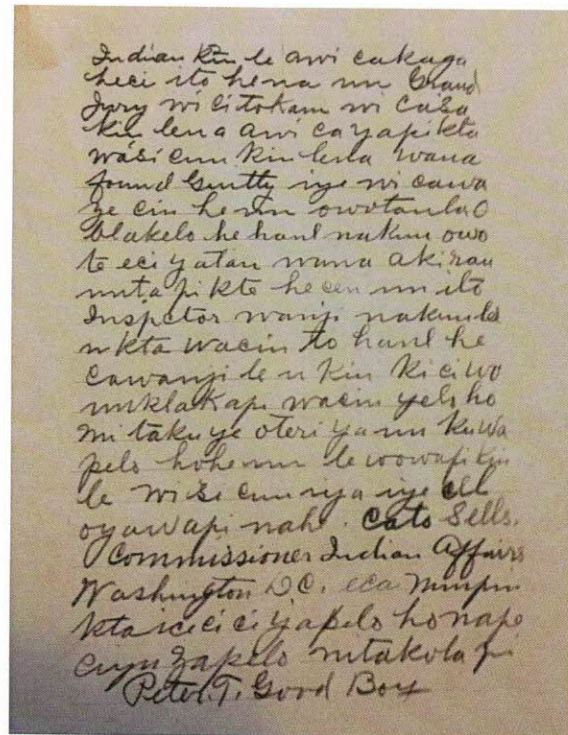 Indian kin le awi cakaga
heci ito hena un Grand
Jury wi citokam wi casa
kin lena awi cayapikta
wasi cun kin lula wana
found Guilty iye wi cawa
ye cin he un owotanla O
blakelo he hanl nakun owo
te eci yatan wana akiran
unta pikte he cen un ito
Inspctor wanji nakun le
u kta wacin to hanl he
cawanji le u kin kici wo
unklakapi wacin yelo ho
mi takuye oteri ya un kuwa
pelo ho he un le wowapi kin
le wisi cun iya iye ell
oyawapi nahi. Cato Sells.
Commissioner Indian Affairs
Washington D.C. eca
kta icicici yapelo ho nape
ciyu zapelo mitakola pi
Peter. T. Good Boy